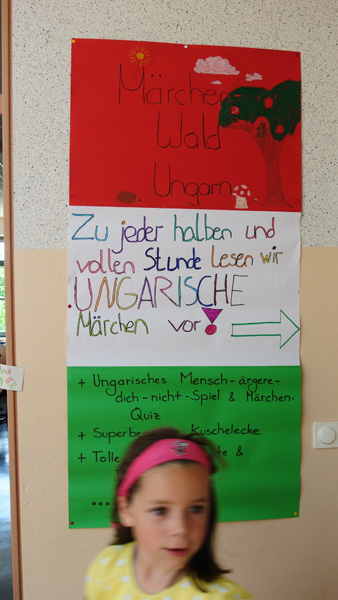 Märchen
Wald
Ungarn
Zu jeder halben und
vollen Stunde Lesen wir
UNGARISCHE
Märchen vor!
+ Ungarisches Mensch-ärgere-
dich-nicht-Spiel & Märchen-
Quiz
+ Kuschelecke
+ Tolle &
...